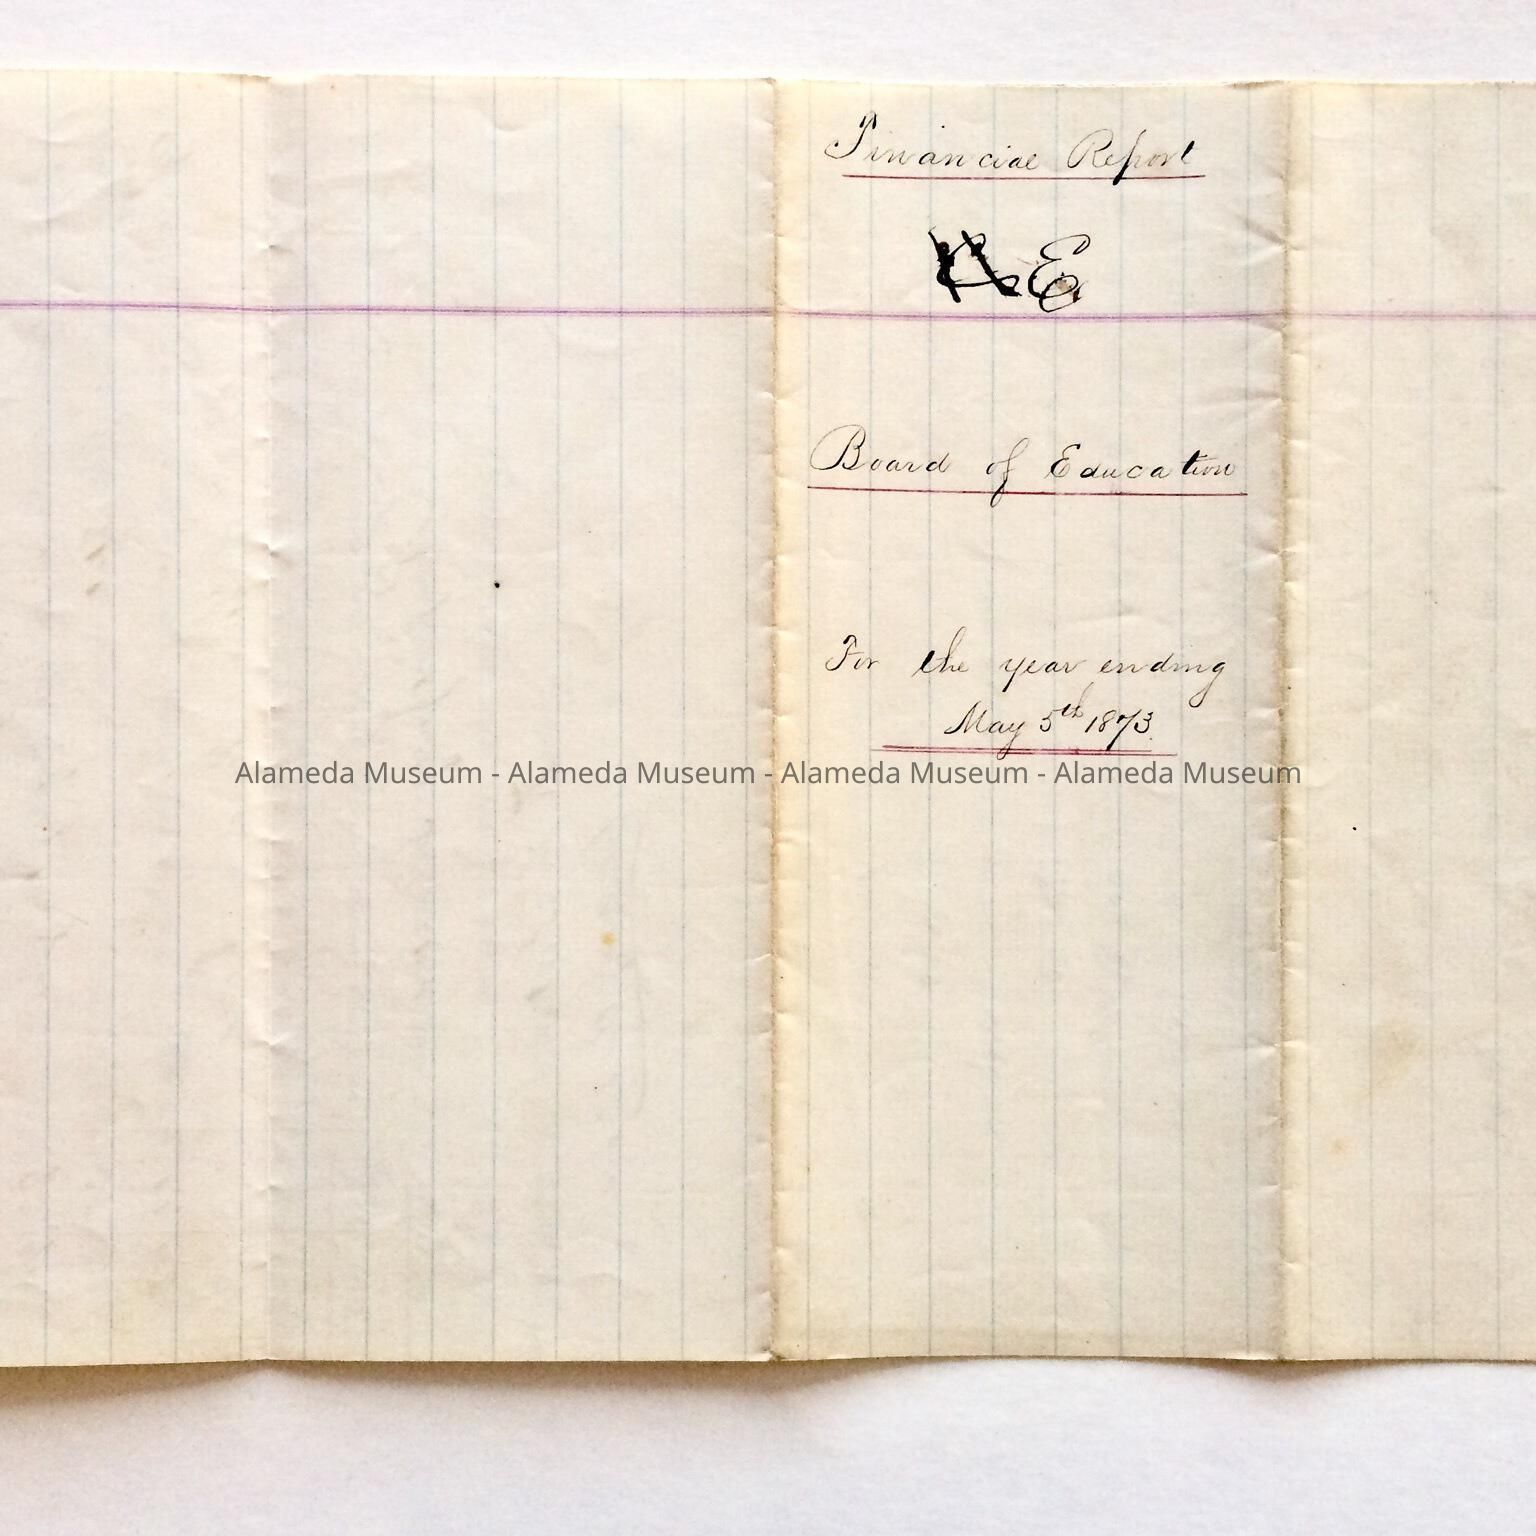 Financial Report
E
Board of Education
For the year ending
May 5th 1873.
Alameda Museum - Alameda Museum - Alameda Museum - Alameda Museum